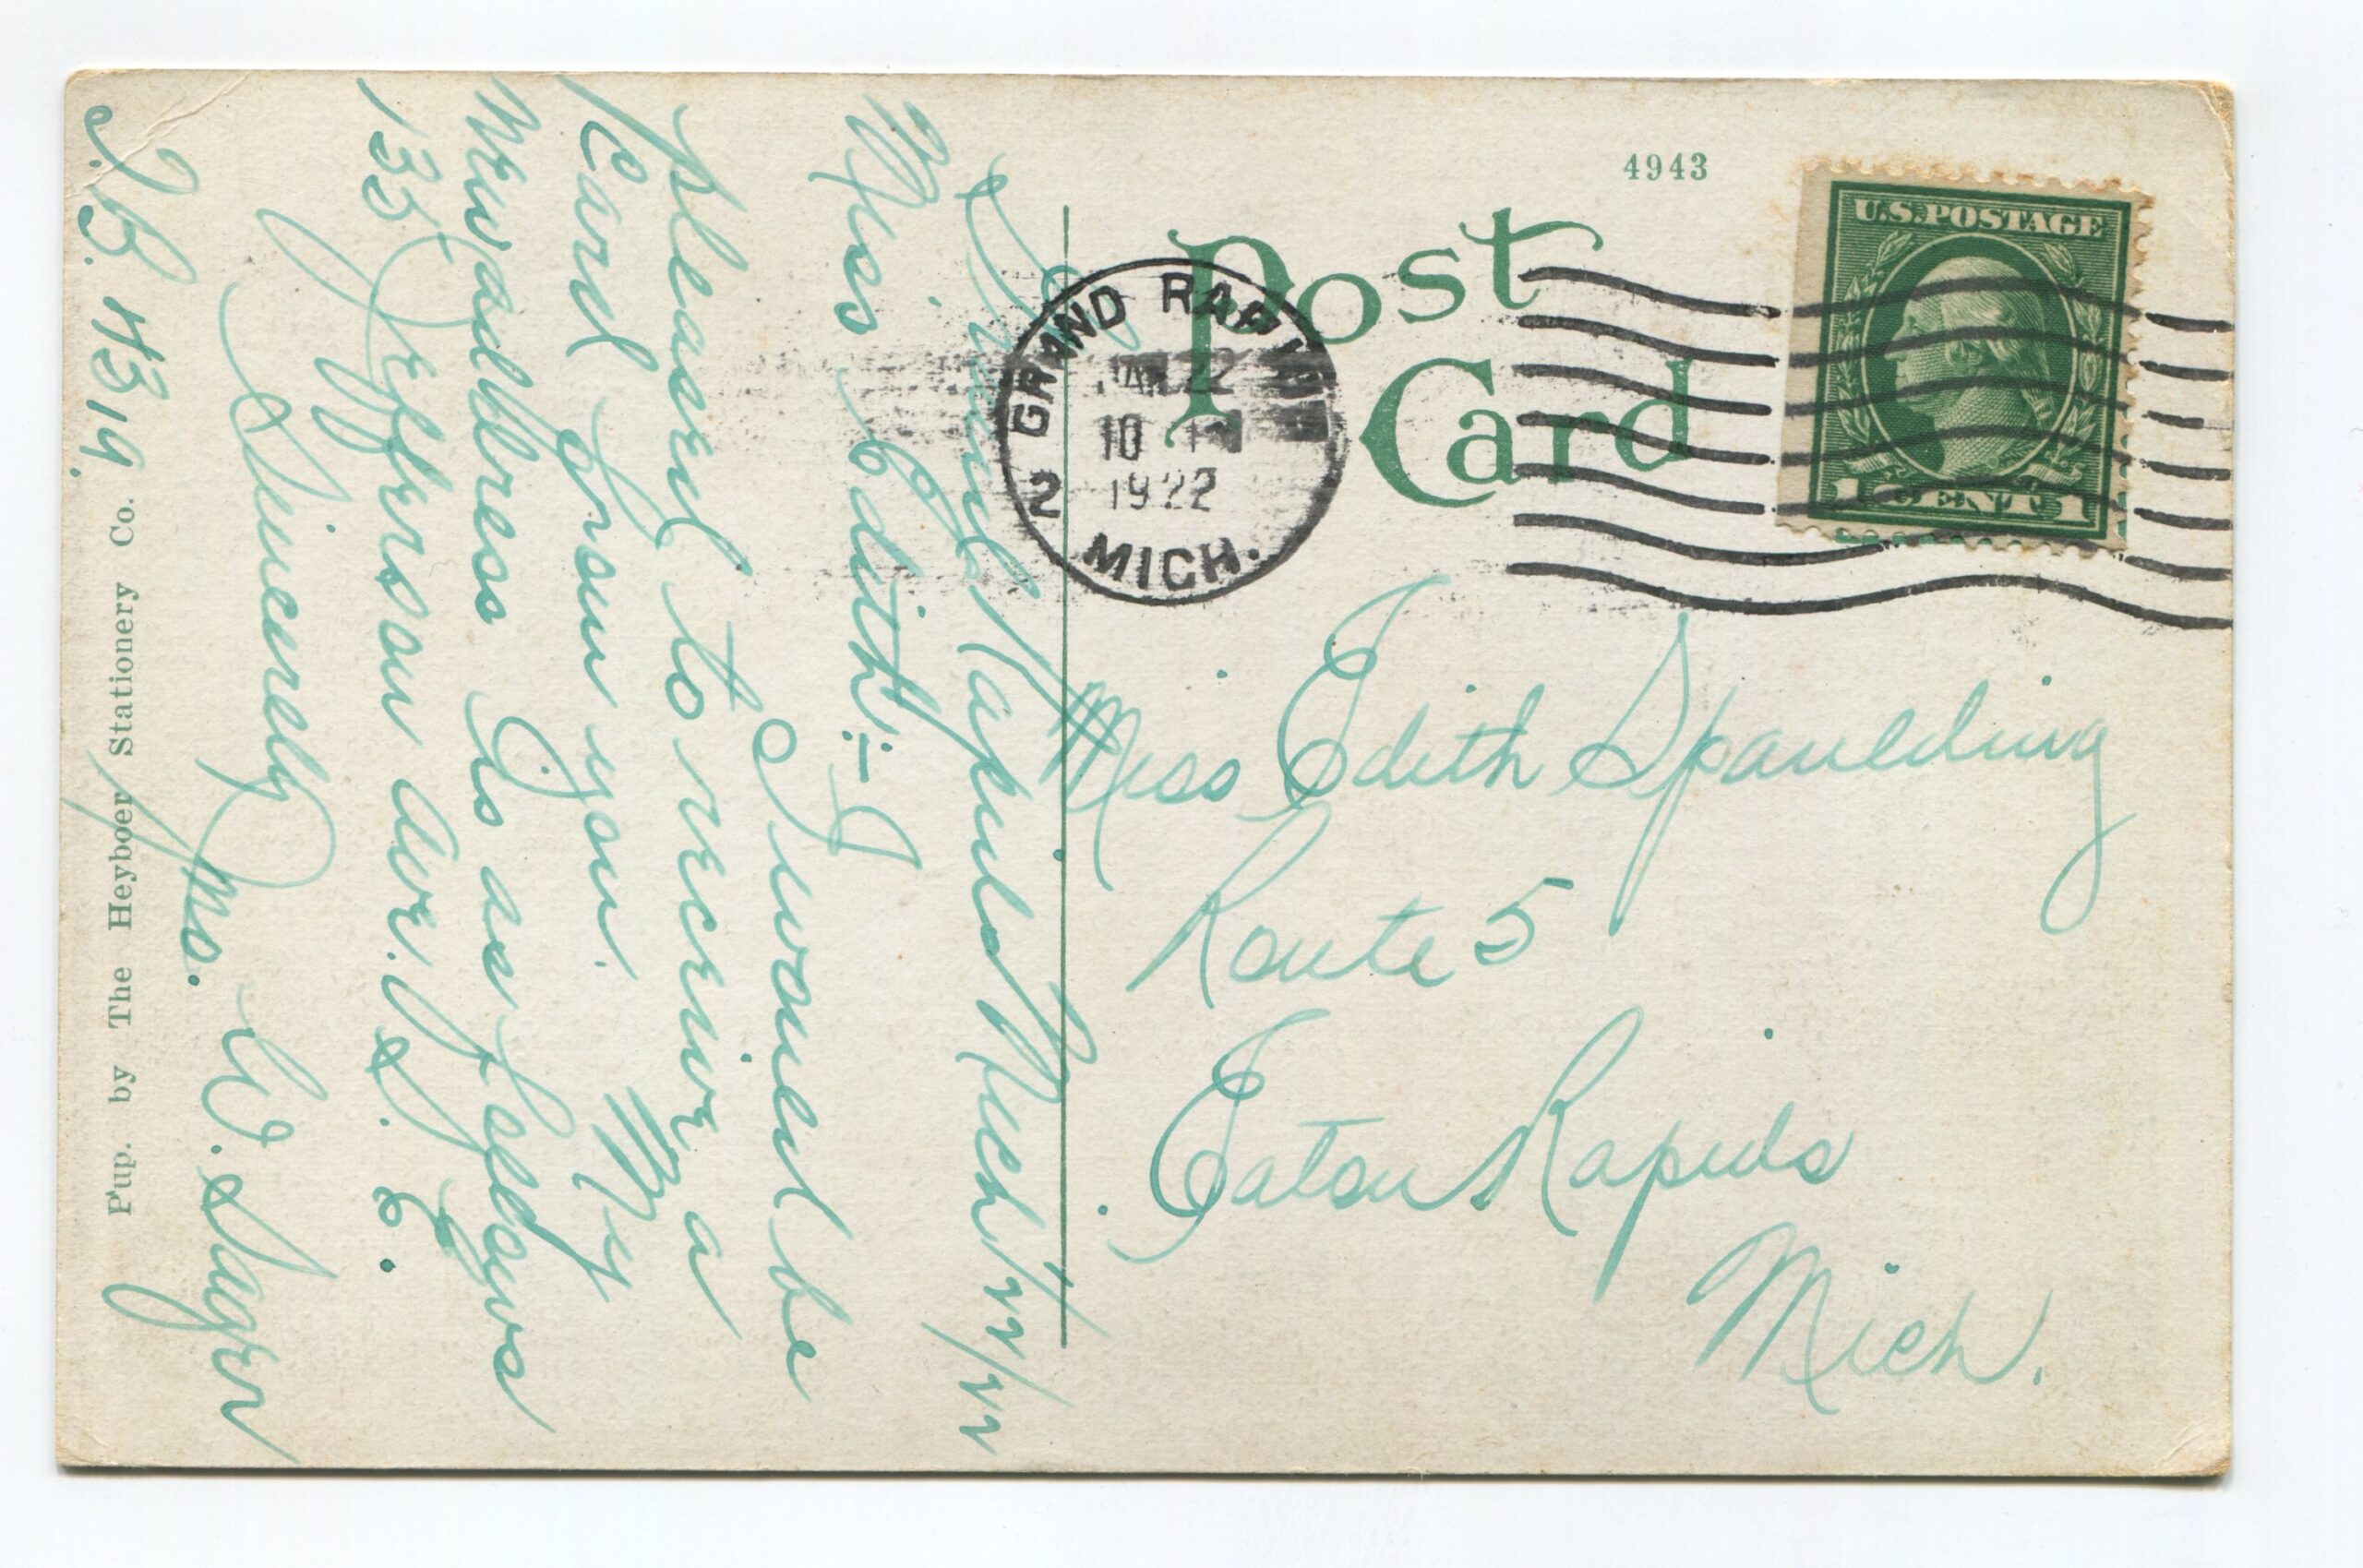 4943
Post
Card
U.S. POSTAGE
1 CENT 1
GRAND RAPIDS
JAN 22
10
1922
2
MICH.
Miss Edith Spaulding
Route 5
Eaton Rapids
Mich.
Grand Rapids Mich 1/22/22
Miss Edith:-
I would be
pleased to receive a
Card from you. My
New address is as follows
135 Jefferson Ave. S. E.
Sincerely
Ms. W. Sager
I.B. 4319.
Pup. by The Heyboer Stationery Co.